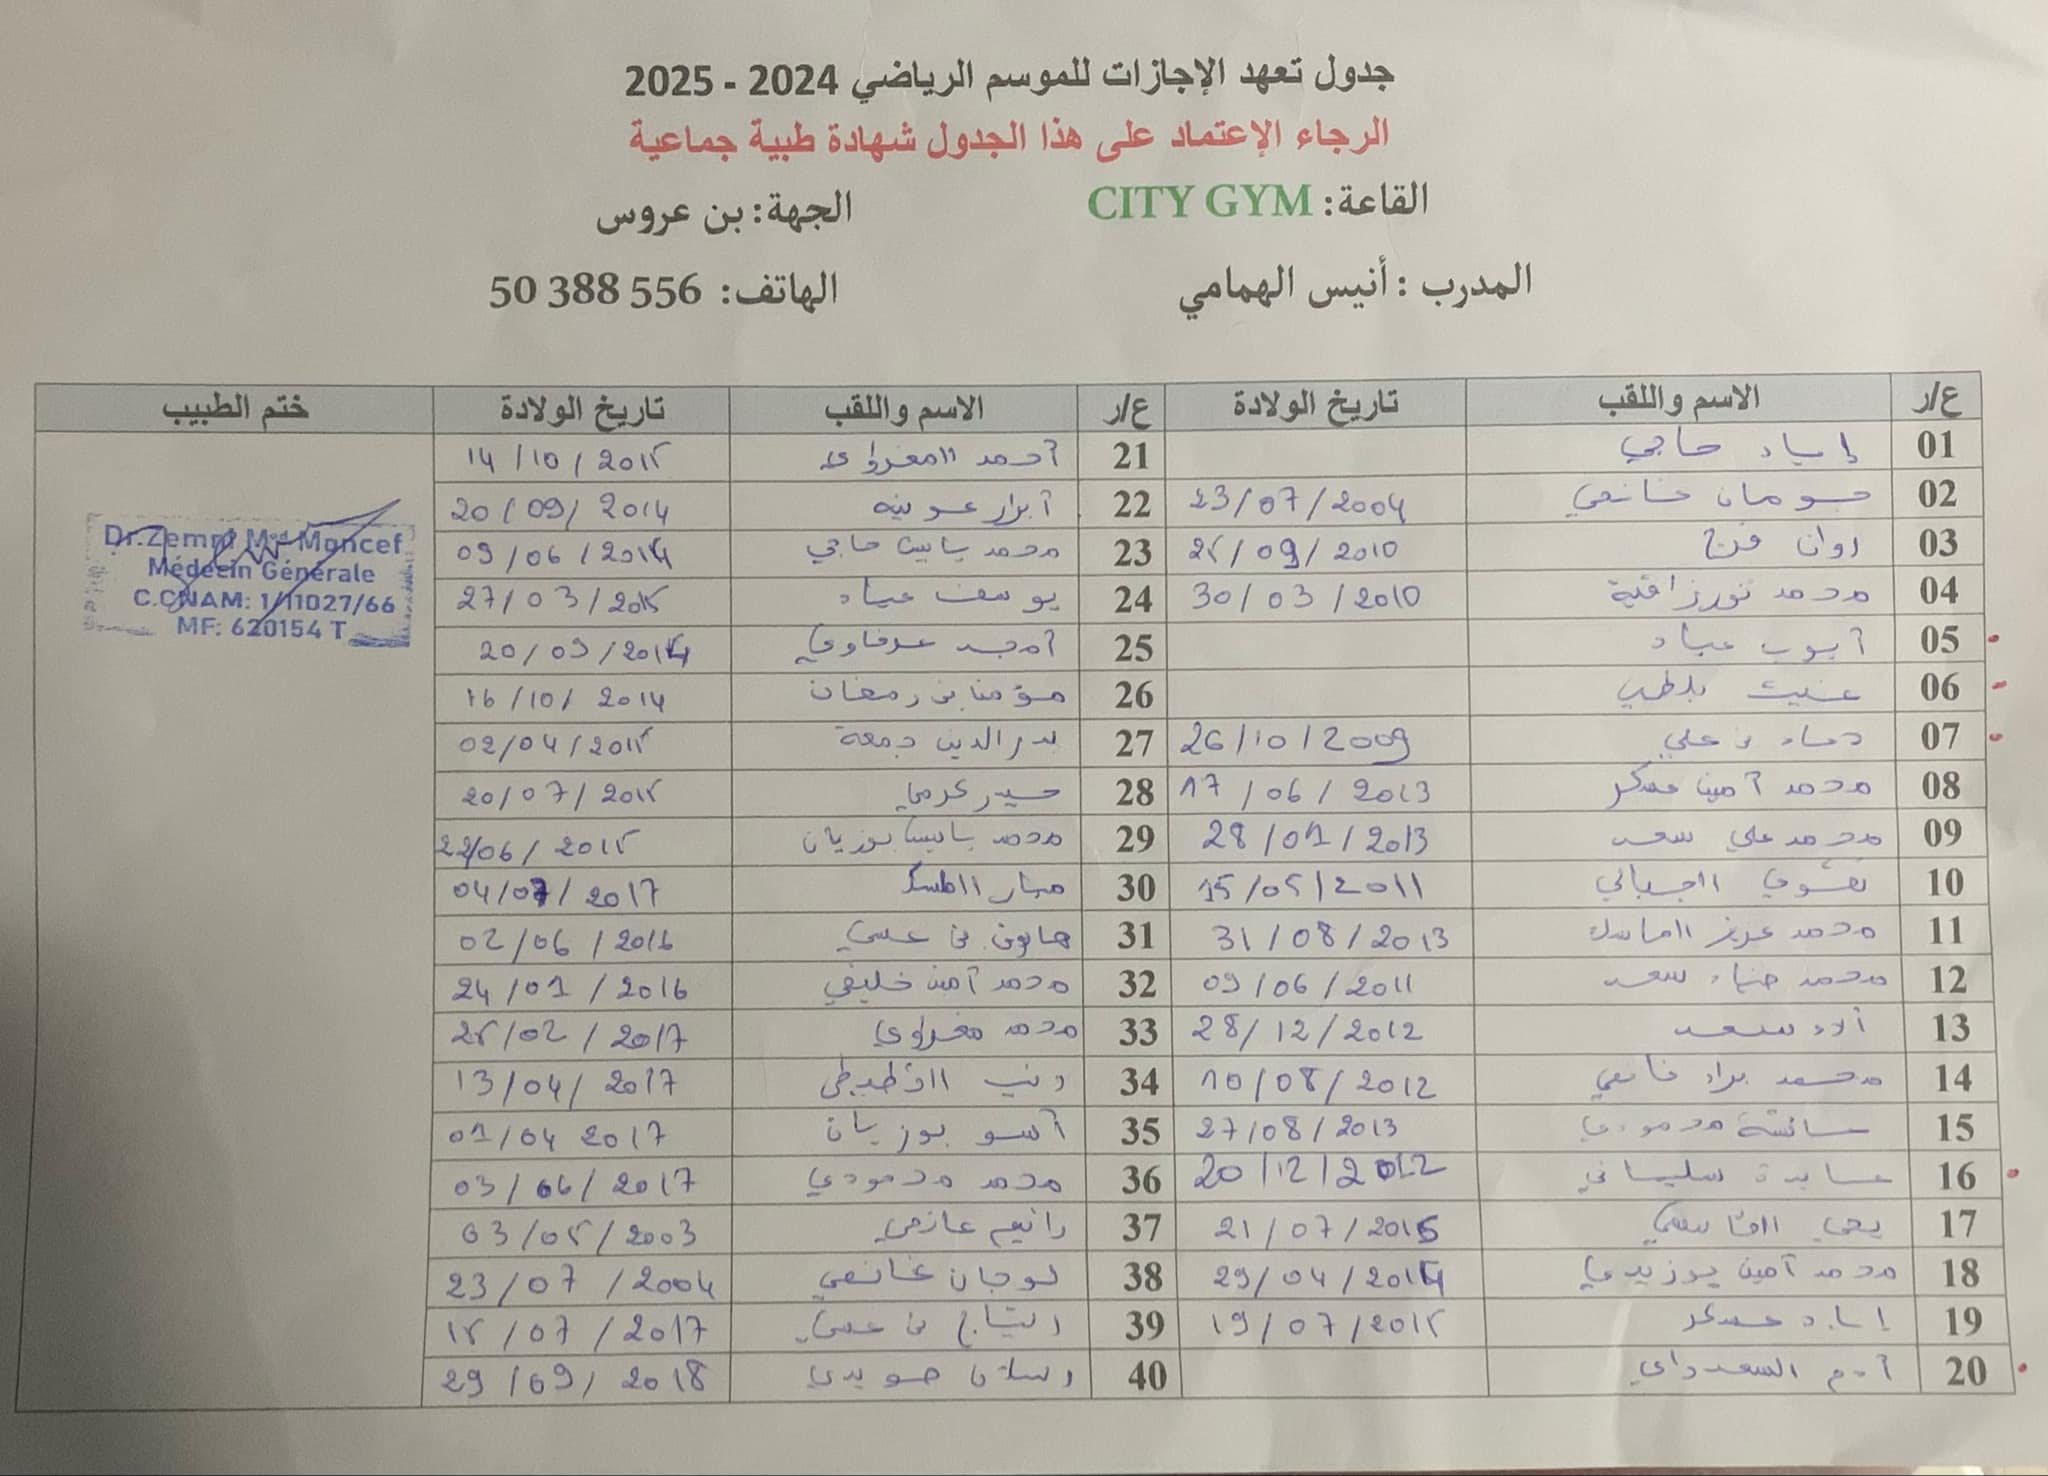 جدول تعهد الإجازات للموسم الرياضي 2024 - 2025
الرجاء الإعتماد على هذا الجدول شهادة طبية جماعية
القاعة: CITY GYM الجهة: بن عروس
المدرب : أنيس الهمامي الهاتف: 50 388 556
ع/ر الاسم واللقب تاريخ الولادة ع/ر الاسم واللقب تاريخ الولادة ختم الطبيب
01 إياد حاجي 21 أحمد المغراوي 14/10/2015
02 غانمي 23/07/2004 22 أبرار عوينه 20/09/2014
03 روان فرج 25/09/2010 23 محمد ياسين حاجي 09/06/2014
04 محمد 30/03/2010 24 يوسف عياد 27/03/2015
05 أيوب عياد 25 أمجد عرفاوي 20/09/2014
06 26 بن رمضان 16/10/2014
07 بن علي 26/10/2009 27 بدر الدين جمعة 02/04/2015
08 محمد أمين عسكر 17/06/2013 28 حيدر كرمي 20/07/2015
09 محمد علي سعد 28/01/2013 29 محمد ياسين بوزيان 22/06/2015
10 تقوى الجبالي 15/05/2011 30 04/07/2017
11 محمد عزيز 31/08/2013 31 بن عيسى 02/06/2016
12 محمد ضياء سعد 09/06/2011 32 محمد أمين خليفي 24/01/2016
13 ألاء سعد 28/12/2012 33 محمد مغراوي 25/02/2017
14 محمد براء غانمي 10/08/2012 34 13/04/2017
15 محمودي 27/08/2013 35 بوزيان 01/04 2017
16 سليماني 20/12/2012 36 محمد محمودي 03/06/2017
17 القاسمي 21/07/2015 37 03/05/2003
18 محمد أمين بوزيدي 29/04/2014 38 لوجان غانمي 23/07/2004
19 إياد عسكر 19/07/2015 39 بن عيسى 15/07/2017
20 أدم السعداوي 40 29/09/2018
Dr.Zemni Med Moncef
Médecin Générale
C.CNAM: 1/11027/66
MF: 620154 T